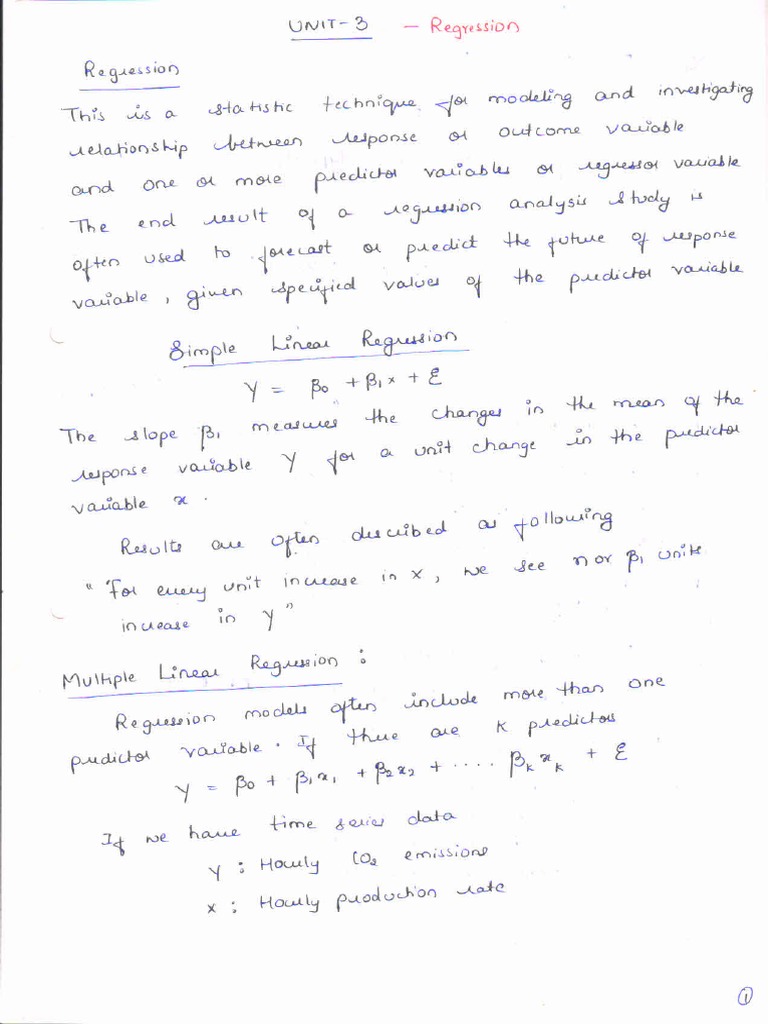 UNIT-3 - Regression
Regression
This is a statistic technique for modeling and investigating
relationship between response or outcome variable
and one or more predictor variables or regressor variable
The end result of a regression analysis study is
often used to forecast or predict the future of response
variable, given specified values of the predictor variable
Simple Linear Regression
Y = β0 + β1x + Ɛ
The slope β1 measures the changes in the mean of the
response variable Y for a unit change in the predictor
variable x.
Results are often described as following
"For every unit increase in x, we see n or β1 units
increase in Y"
Multiple Linear Regression :
Regression models often include more than one
predictor variable. If there are K predictors
Y = β0 + β1x1 + β2x2 + .... βkxk + Ɛ
If we have time series data
Y : Hourly CO2 emissions
x : Hourly production rate
1